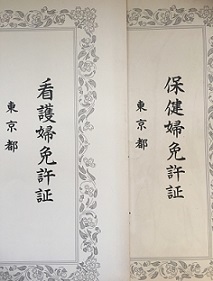 保健婦免許証
東京都
看護婦免許証
東京都